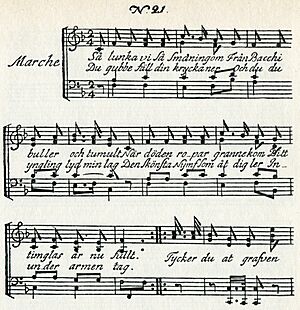 No 21.
Marche
Så lunka vi Så Småningom Från Bacchi
Du gubbe fäll din kryckan er Och du du
buller och tumult När döden ro-par granne kom Ditt
yngling lyd min lag Den skönsta Nymf som åt dig ler In-
timglas är nu fullt. Tycker du at grafven
under armen tag.